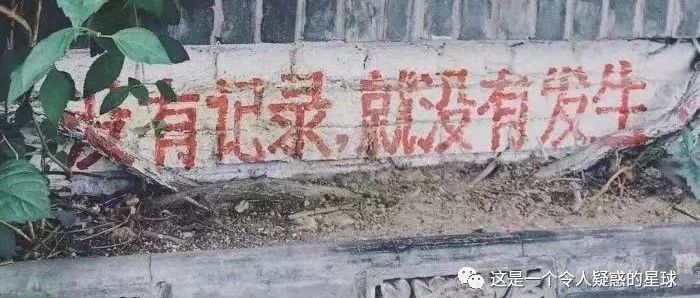 没有记录,就没有发生
这是一个令人疑惑的星球